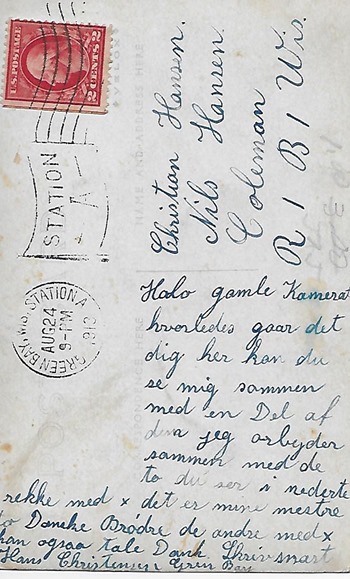 U.S. POSTAGE
2 CENTS 2
STATION
A
GREEN BAY, WIS. STATION A
AUG 24
9-PM
Christian Hansen.
Nils Hansen.
Coleman
R 1 B 1 Wis
Halo gamle Kamerat
hvorledes gaar det
dig her kan du
se mig sammen
med en Del af
dem jeg arbyder
sammen med de
to du ser i nederte
rekke med x det er mine mestre
to Danske Brödre de andre med x
kan ogsaa tale Dansk Skriv snart
Hans Christensen Green Bay